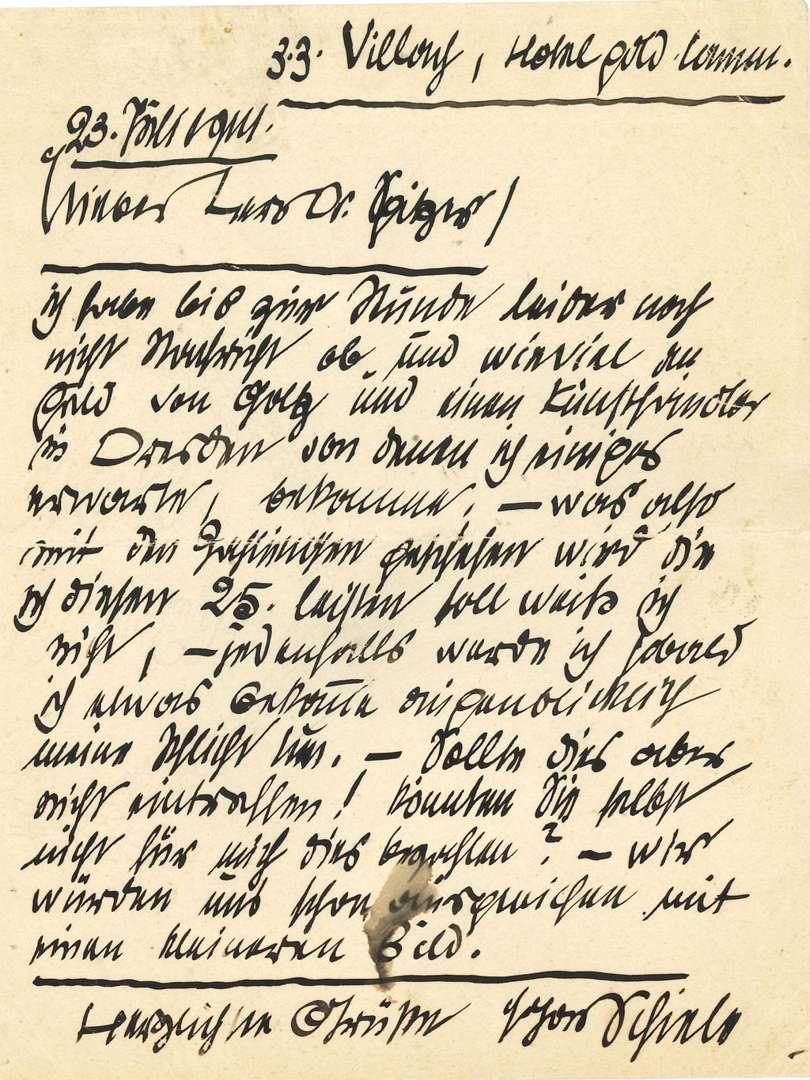 z.Z. Villach, Hotel gold. Lamm.
23. Juli 1914.
Lieber Herr Dr. Spitzer!
ich habe bis zur Stunde leider noch
nicht Nachricht ob und wieviel an
Geld von Goltz und einen Kunsthändler
in Dresden von denen ich einiges
erwarte, bekomme. – was also
mit den Zahlungen geschehen wird die
ich diesen 25. leisten soll weiß ich
nicht, – jedenfalls werde ich sobald
ich etwas bekom̄e augenblicklich
meine Pflicht tun. – Sollte dies aber
nicht eintreffen! könnten Sie selbst
nicht für mich dies bezahlen? – wir
würden uns schon ausgleichen mit
einen kleineren Bild.
Herzlichste Grüße Egon Schiele